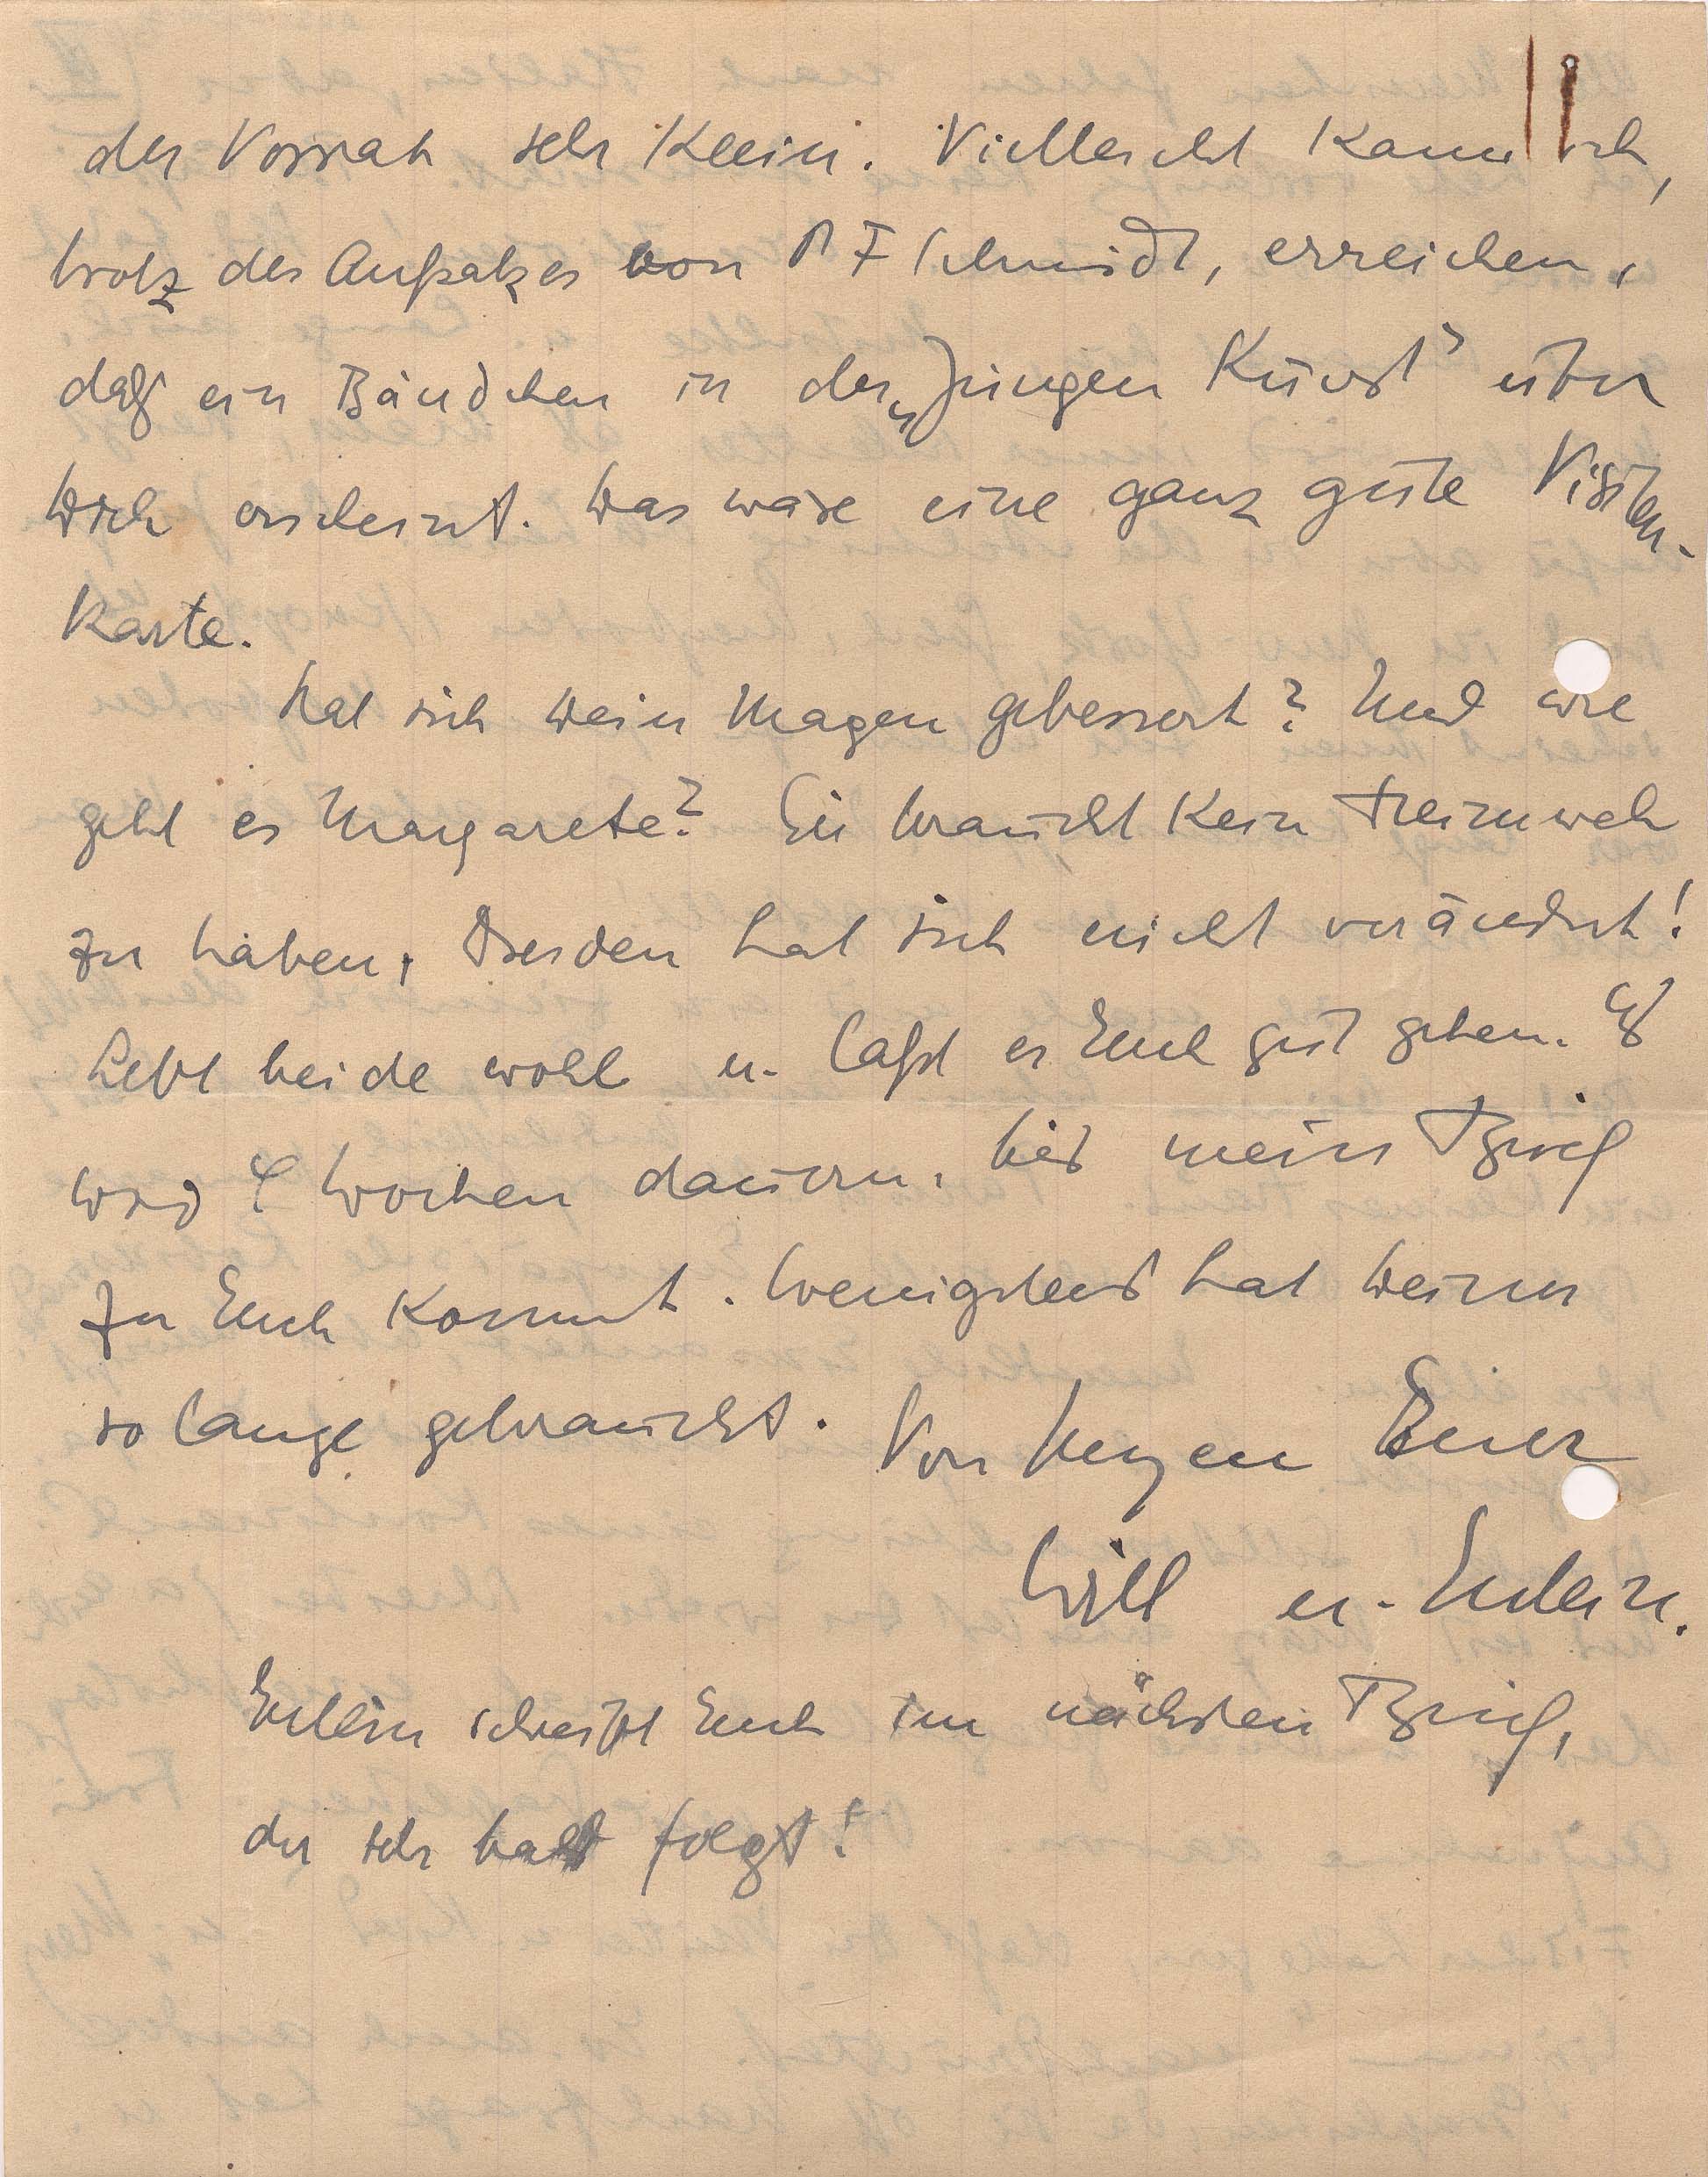 der Vorrat sehr klein. Vielleicht kann ich,
trotz des Aufsatzes von P F Schmidt, erreichen,
daß ein Bändchen in der „Jungen Kunst" über
Dich erscheint. Das wäre eine ganz gute Visiten-
karte.
Hat sich Dein Magen gebessert? Und wie
geht es Margarete? Sie braucht kein Heimweh
zu haben, Dresden hat sich nicht verändert!
Lebt beide wohl u. laßt es Euch gut gehen. Es
wird 4 Wochen dauern, bis mein Brief
zu Euch kommt. Wenigstens hat Deiner
so lange gebraucht. Von Herzen Euer
Will u. Eulein.
Eulein schreibt Euch im nächsten Brief,
der sehr bald folgt!